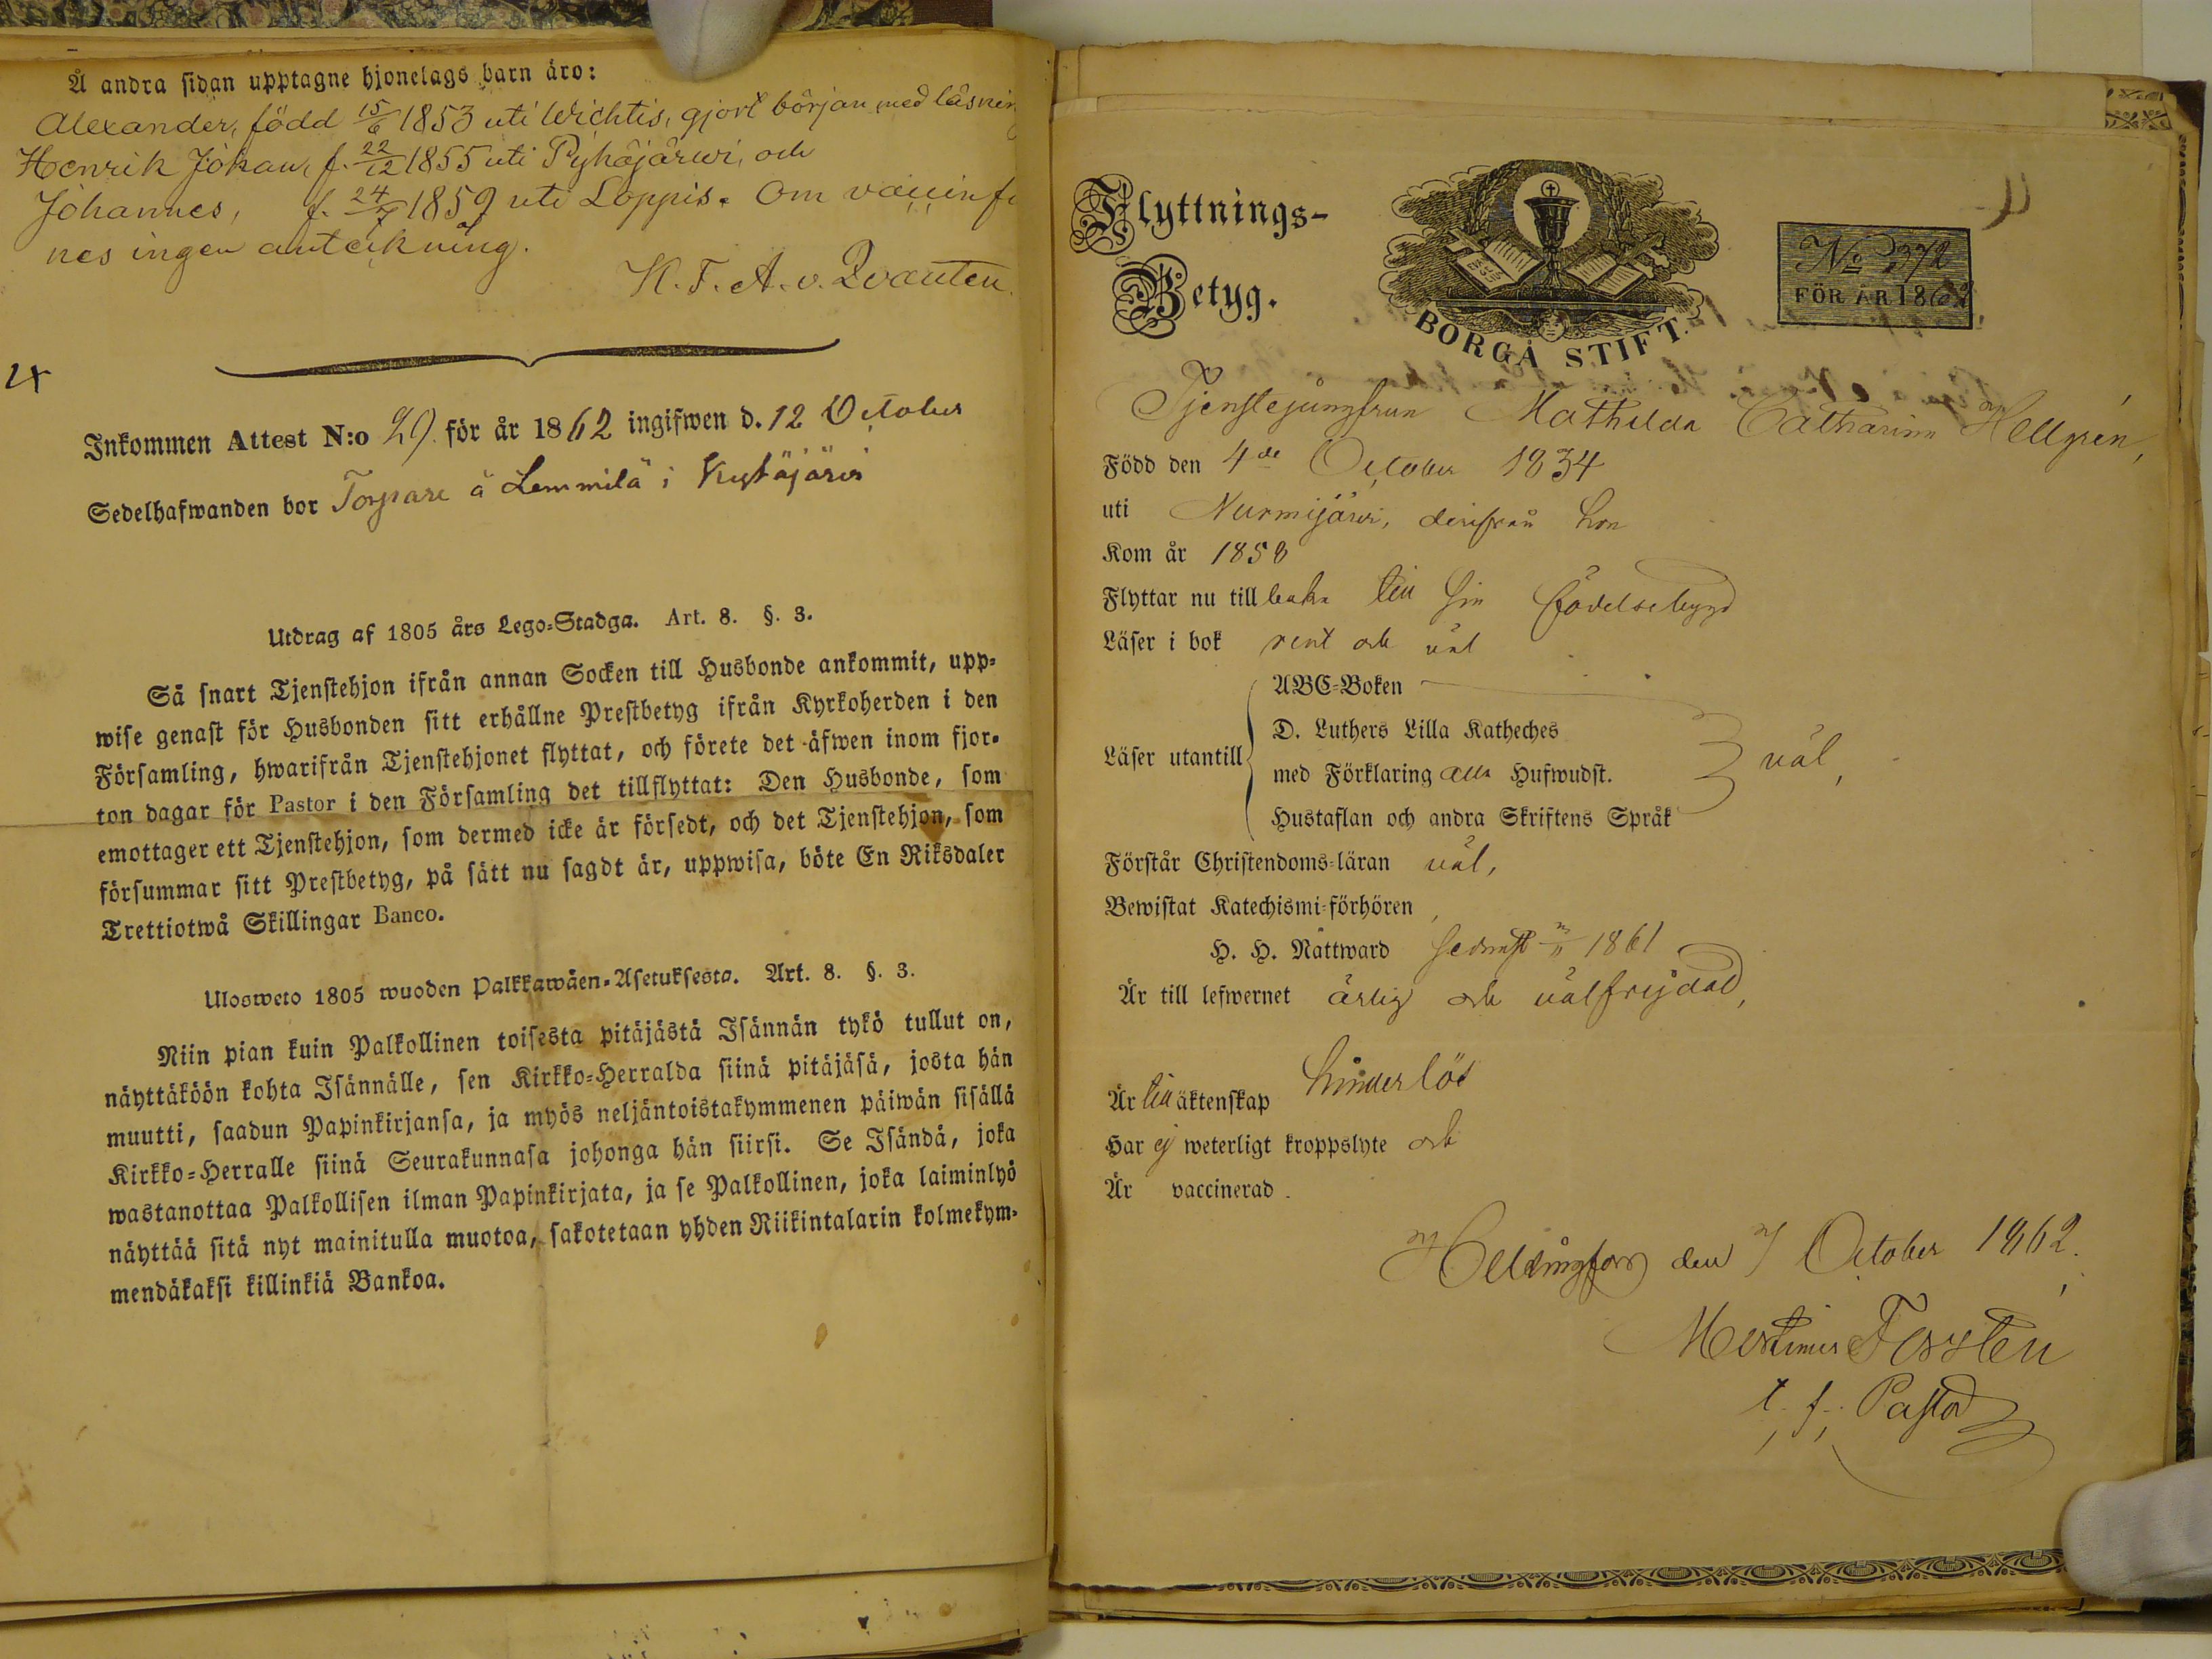 Å andra sidan upptagne hjonelags barn äro:
Alexander, född 15/6 1853 uti Wichtis, gjort början med läsnin
Henrik Johan, f. 22/12 1855 uti Pyhäjärwi, och
Johannes, f. 24/7 1859 uti Loppis. Om vaccin fi
nes ingen anteckning.
K. F. A. v. Qvanten.
Inkommen Attest N:o 29. för år 1862 ingifwen d. 12 October
Sedelhafwanden bor Torpare å Lemmilä i Kytäjärvi
Utdrag af 1805 års Lego-Stadga. Art. 8. §. 3.
Så snart Tjenstehjon ifrån annan Socken till Husbonde ankommit, upp-
wise genast för Husbonden sitt erhållne Prestbetyg ifrån Kyrkoherden i den
Församling, hwarifrån Tjenstehjonet flyttat, och förete det äfwen inom fjor-
ton dagar för Pastor i den Församling det tillflyttat: Den Husbonde, som
emottager ett Tjenstehjon, som dermed icke är försedt, och det Tjenstehjon, som
försummar sitt Prestbetyg, på sätt nu sagdt är, uppwisa, böte En Riksdaler
Trettiotwå Skillingar Banco.
Ulosweto 1805 wuoden Palkkawäen-Asetuksesta. Art. 8. §. 3.
Niin pian kuin Palkollinen toisesta pitäjästä Isännän tykö tullut on,
näyttäköön kohta Isännälle, sen Kirkko-Herralda siinä pitäjäsä, josta hän
muutti, saadun Papinkirjansa, ja myös neljäntoistakymmenen päiwän sisällä
Kirkko-Herralle siinä Seurakunnasa johonga hän siirsi. Se Isändä, joka
wastanottaa Palkollisen ilman Papinkirjata, ja se Palkollinen, joka laiminlyö
näyttää sitä nyt mainitulla muotoa, sakotetaan yhden Riikintalarin kolmekym-
mendäkaksi killinkiä Bankoa.
Flyttnings-
Betyg.
BORGÅ STIFT.
No 372
FÖR ÅR 1862
Tjenstejungfrun Mathilda Catharina Hellgrén,
Född den 4de October 1834
uti Nurmijärvi, derifrån hon
Kom år 1858
Flyttar nu tillbaka till sin födelsebygd
Läser i bok rent och väl
Läser utantill
ABC-Boken
D. Luthers Lilla Katheches
med Förklaring alla Hufwudst.
Hustaflan och andra Skriftens Språk
väl,
Förstår Christendoms-läran väl,
Bewistat Katechismi-förhören,
H. H. Nattward sednast 1861
Är till lefwernet ärlig och välfrejdad,
Är till äktenskap hinderlös
Har ej weterligt kroppslyte och
Är vaccinerad.
Helsingfors den 7 October 1862.
Forstén
t. f. Pastor